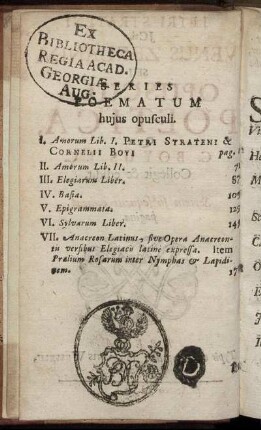 EX
BIBLIOTHECA
REGIA ACAD.
GEORGIÆ
AUG:
SERIES
POEMATUM
hujus opusculi.
I. Amorum Lib. I. PETRI STRATENI &
CORNELII BOYI pag.
II. Amorum Lib. II. 71
III. Elegiarum Liber. 87
IV. Basia. 105
V. Epigrammata. 129
VI. Sylvarum Liber. 145
VII. Anacreon Latinus, sive Opera Anacreon-
tis versibus Elegiacis latine expressa. Item
Prælium Rosarum inter Nymphas & Lapidi-
nem.